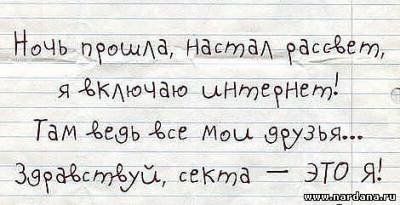 Ночь прошла, настал рассвет,
я включаю интернет!
Там ведь все мои друзья...
Здравствуй, секта — ЭТО Я!
www.nardana.ru